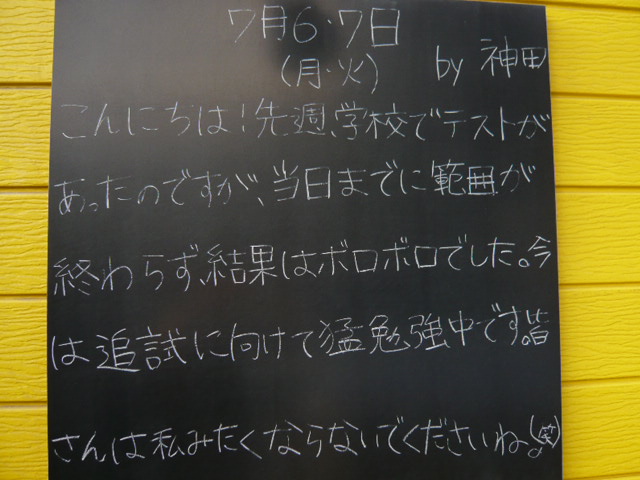 7月6・7日
(月・火) by 神田
こんにちは!先週、学校でテストが
あったのですが、当日までに範囲が
終わらず、結果はボロボロでした。今
は追試に向けて猛勉強中です。皆
さんは私みたくならないでくださいね。(笑)